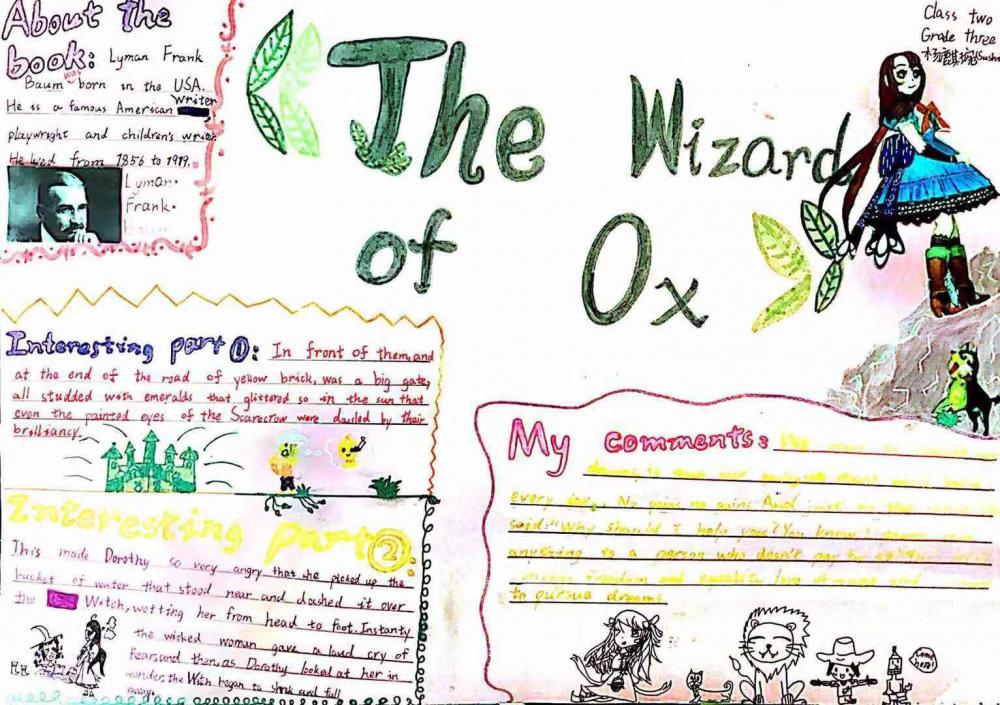 About the
book: Lyman Frank
Baum was born in the USA.
He is a famous American Writer
playwright and children's writer
He lived from 1856 to 1919.
Lyman·
Frank·
Baum
The Wizard
of Ox
Class two
Grade three
Interesting part ①: In front of them, and
at the end of the road of yellow brick, was a big gate,
all studded with emeralds that glittered so in the sun that
even the painted eyes of the Scarecrow were dazled by their
brilliancy.
Interesting Part ②
This made Dorothy so very angry that she picked up the
bucket of water that stood near and dashed it over
the Witch, wetting her from head to foot. Instanty
the wicked woman gave a loud cry of
fear, and then, as Dorothy looked at her in
wonder, the Witch began to shrink and fall
away.
My comments:
every day. No pains no gains. And just as the
said: "Why should I help you? You know I never
anything to a person who doesn't pay for
freedom and equality love
to pursue dreams
Come here!